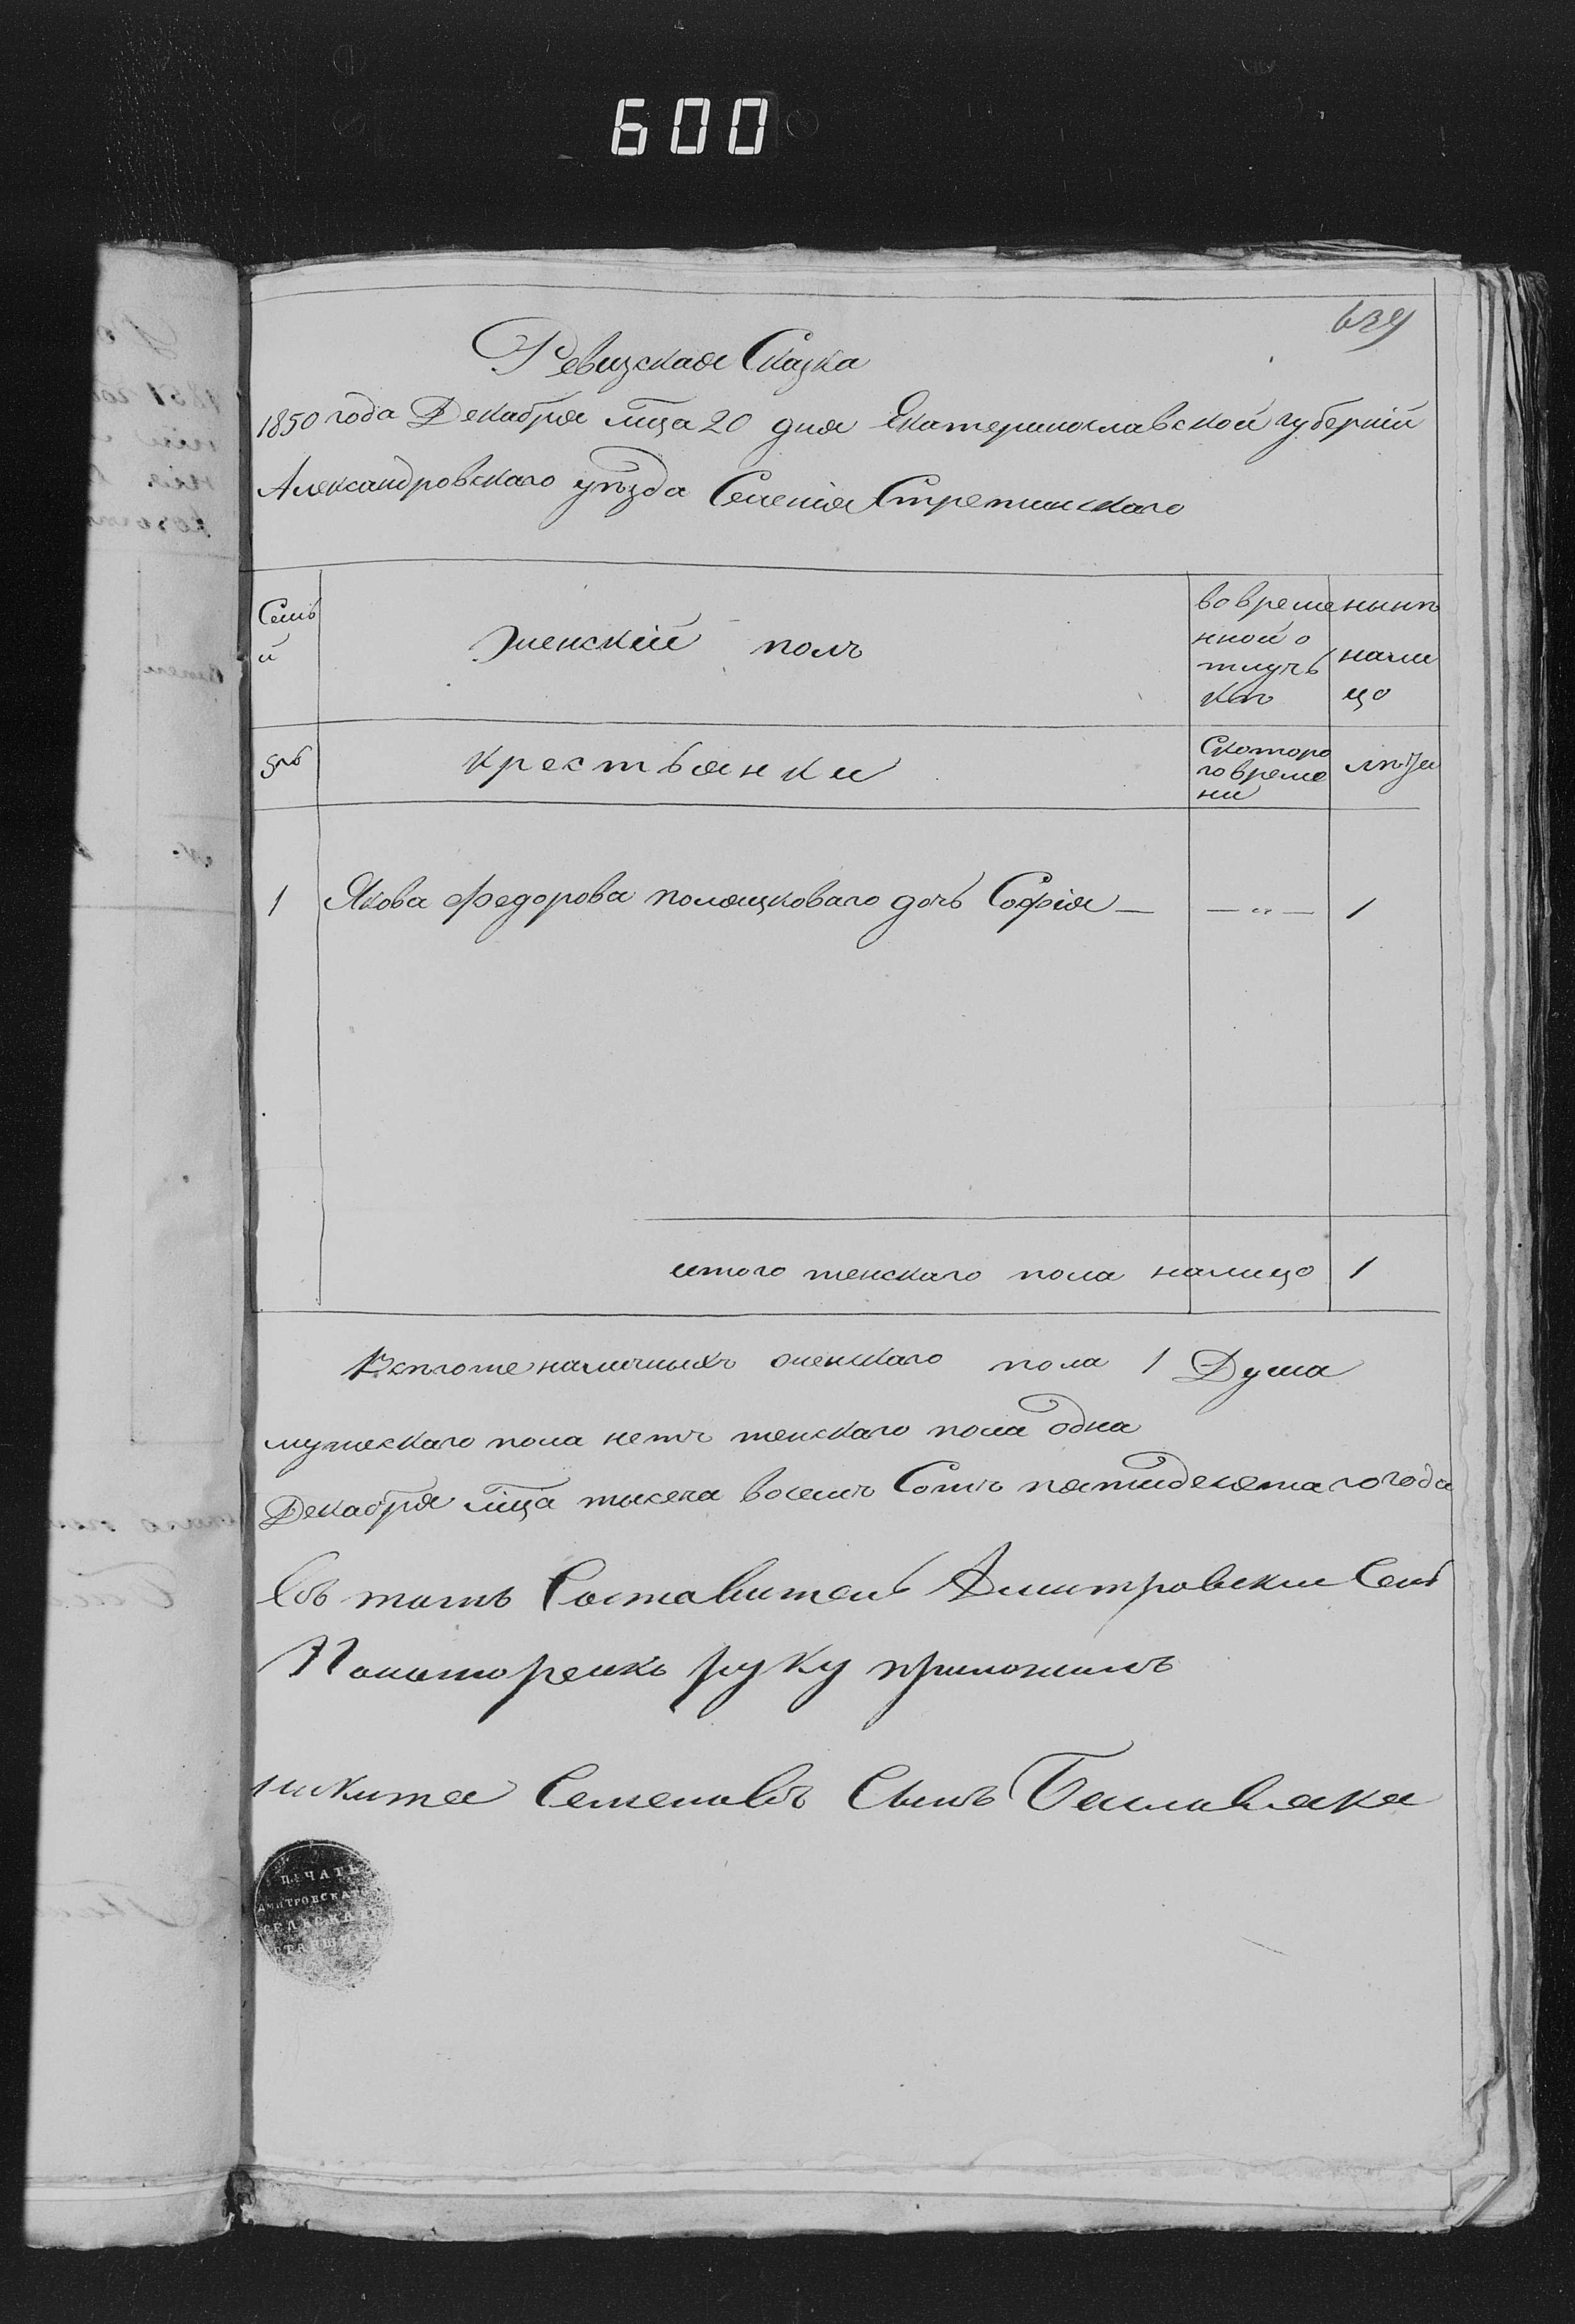 600
639
Ревизская Сказка
1850 года Декабря мца 20 дня Екатеринославской губерніи
Александровскаго уѣзда Селенія Стретинскаго
Семь
и
Женскій полъ
во време
нной о
тлучь
кѣ
нынѣ
нали
цо
крестьянки
Скоторо
го време
ни
лѣта
1 Якова Федорова Полящковаго дочь Софія — — " — 1
итого женскаго пола налицо 1
наличныхъ женскаго пола 1 Душа
мужескаго пола нетъ женскаго пола одна
Декабря мца тысеча восемъ Сотъ пятидесятаго года
Составитель Дмитровски
руку приложилъ
никита Семеновъ Сынъ
ПЕЧАТЬ
ДМИТРОВСКАГО
СЕЛЬСКАГО
СТАРШИНЫ